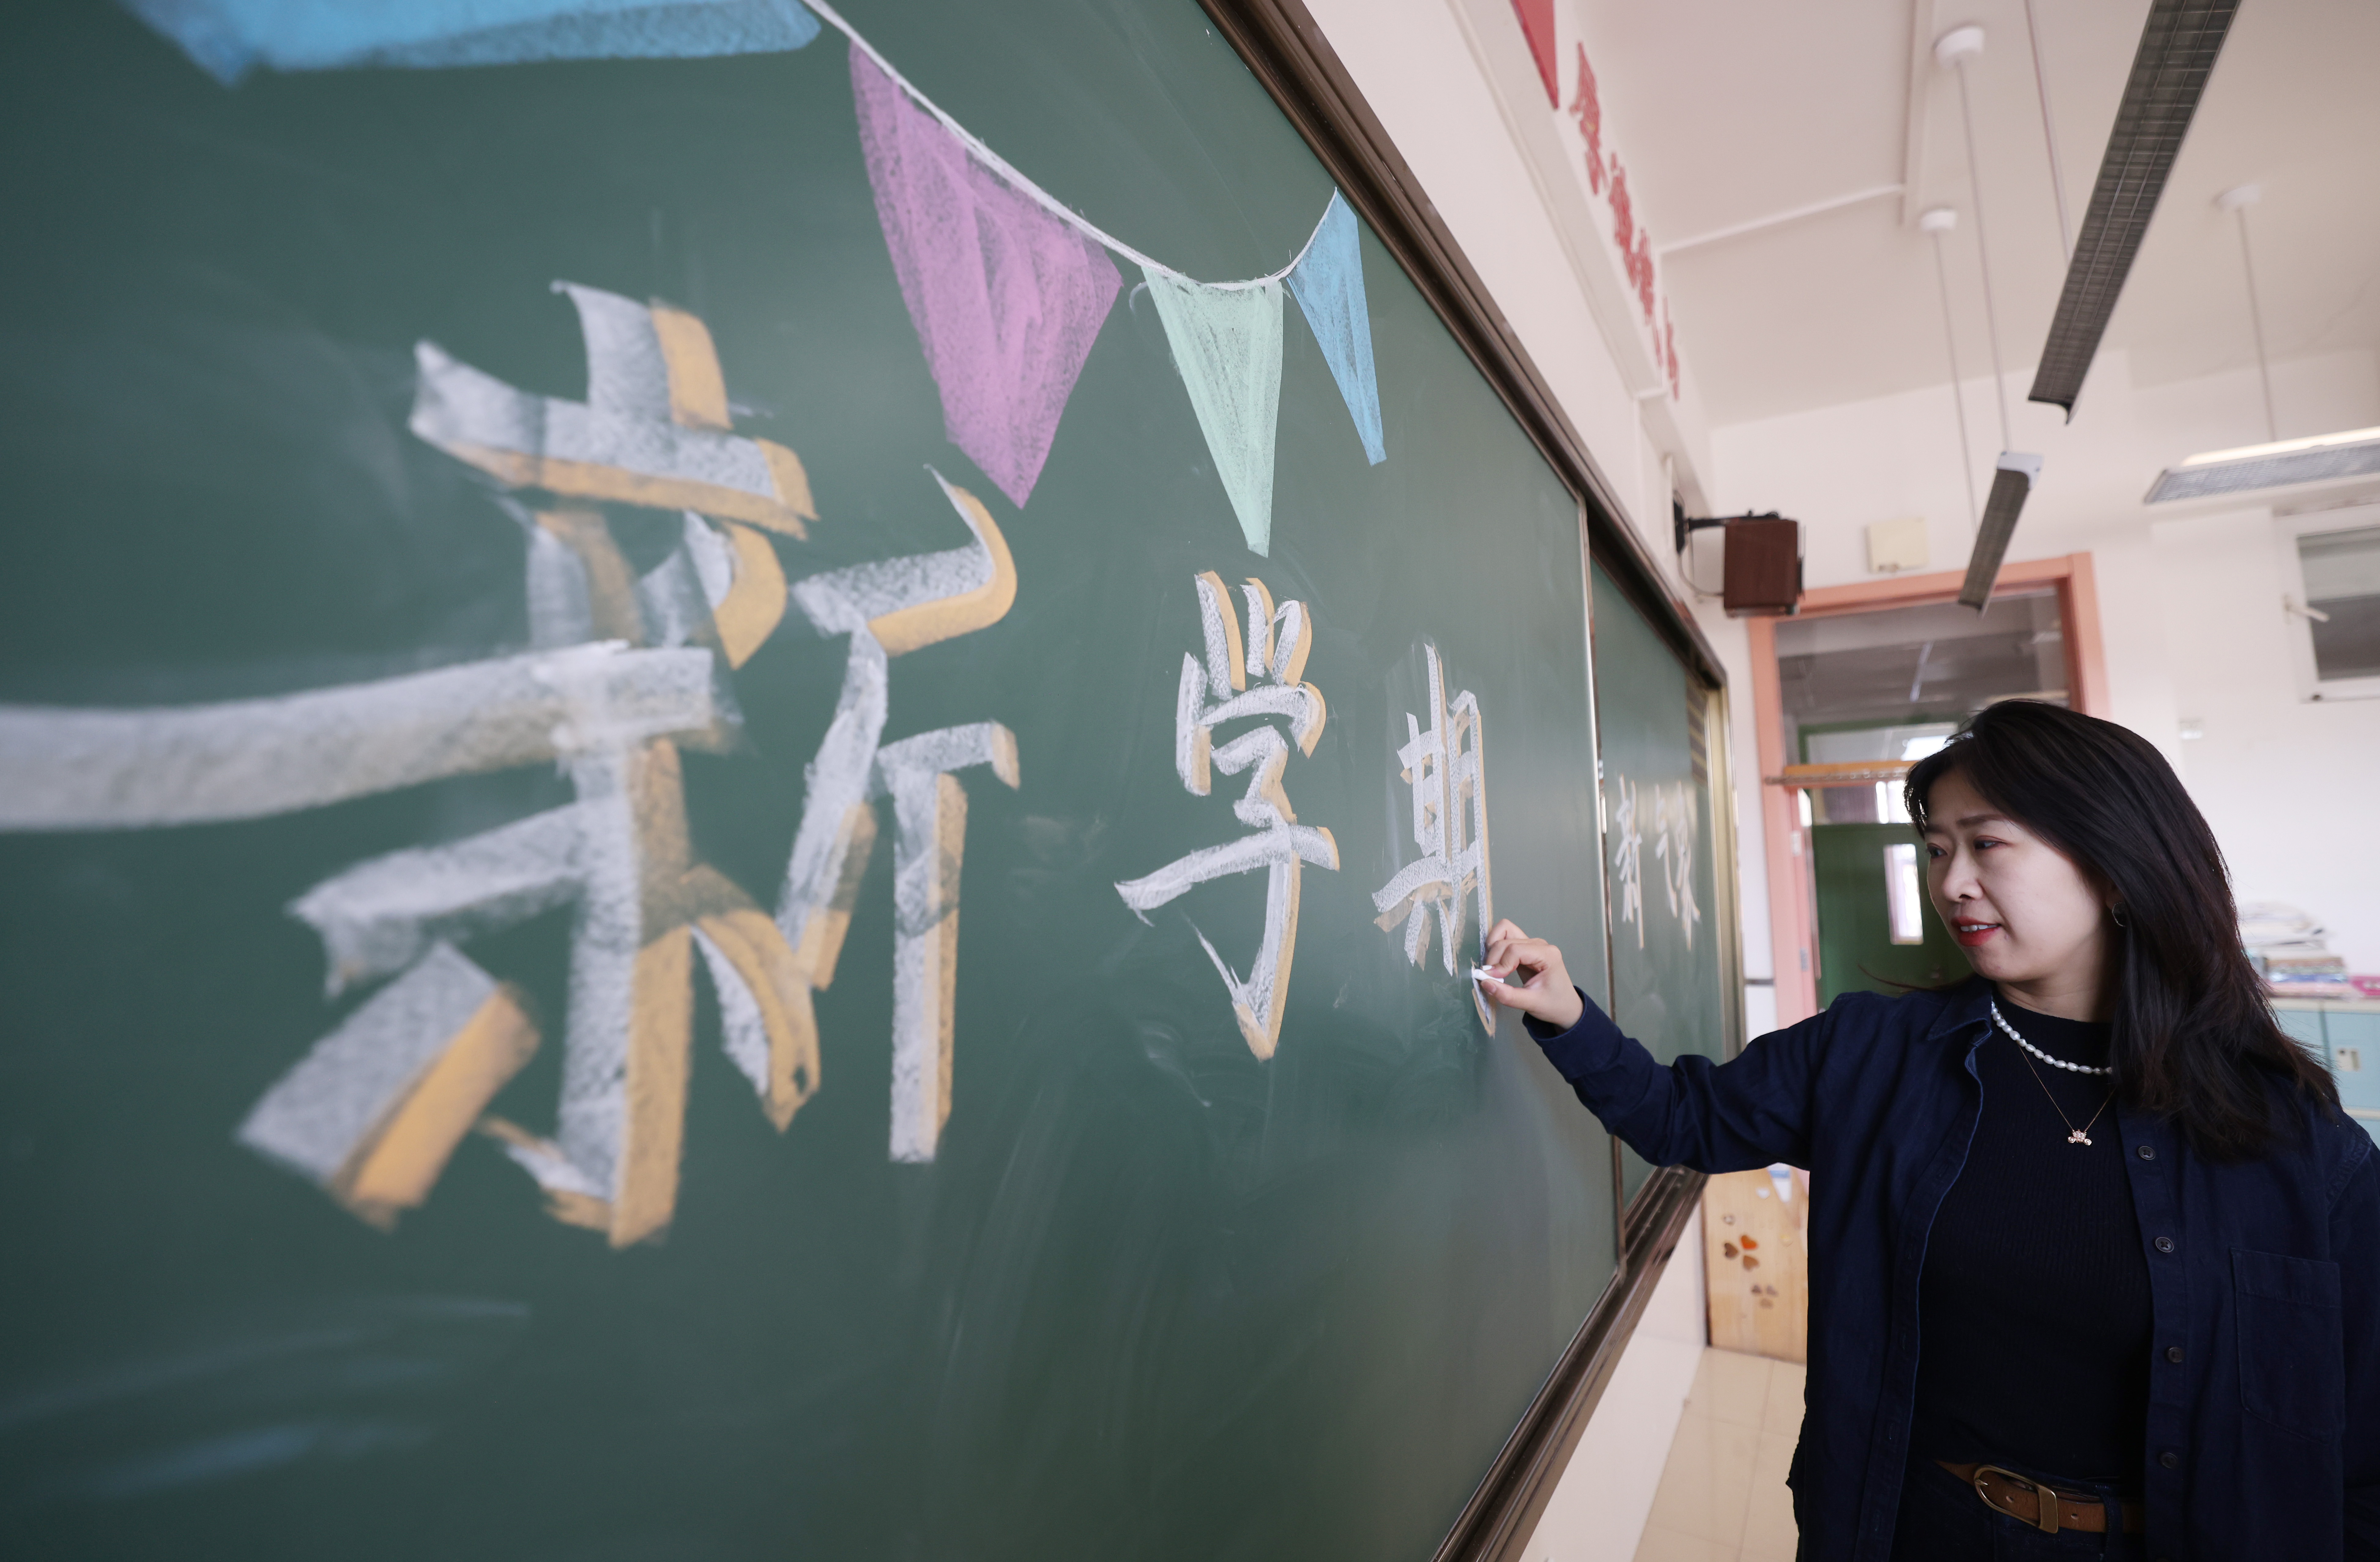 新学期
新气象